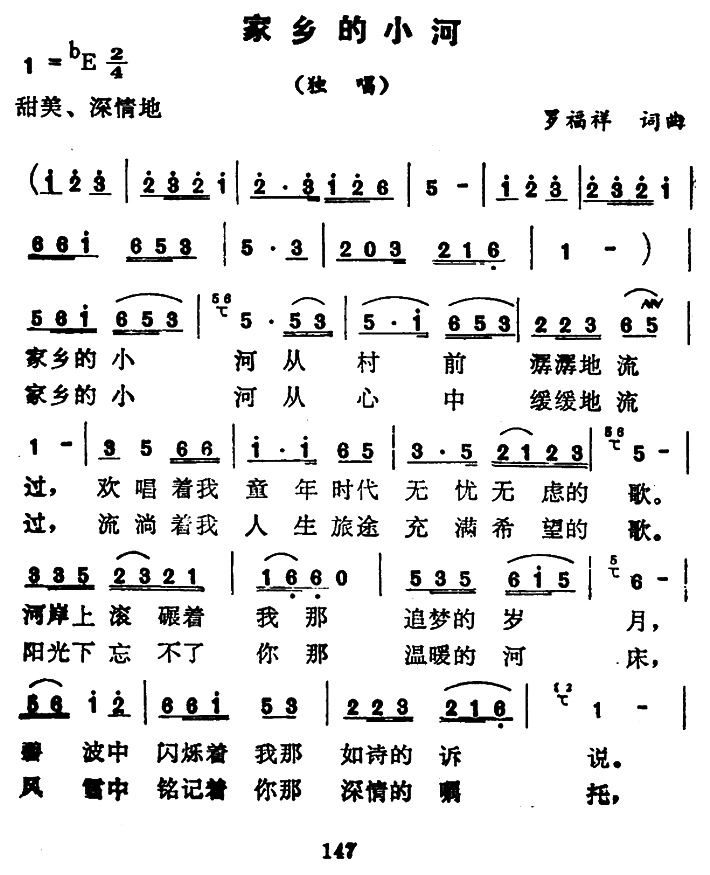 家乡的小河
1 = ᵇE 2/4
（独 唱）
甜美、深情地
罗福祥 词曲
(i̇ 2̇ 3̇ | 2̇ 3̇ 2̇ i̇ | 2̇ · 3̇ i̇ 2̇ 6 | 5 - | i̇ 2̇ 3̇ | 2̇ 3̇ 2̇ i̇ |
6 6 i̇ 6 5 3 | 5 · 3 | 2 0 3 2 1 6̣ | 1 - ) |
5 6 i̇ 6 5 3 | 56 5 · 5 3 | 5 · i̇ 6 5 3 | 2 2 3 6 5 |
家乡的小 河从 村 前 潺潺地流
家乡的小 河从 心 中 缓缓地流
1 - | 3 5 6 6 | i̇ · i̇ 6 5 | 3 · 5 2 1 2 3 | 56 5 - |
过，欢唱着我 童 年时代 无 忧无 虑的 歌。
过，流淌着我 人 生旅途 充 满希 望的 歌。
3 3 5 2 3 2 1 | 1 6̣ 6̣ 0 | 5 3 5 6 i̇ 5 | 5 6 - |
河岸上滚 碾着 我 那 追梦的岁 月，
阳光下忘 不了 你 那 温暖的河 床，
5 6 i̇ 2̇ | 6 6 i̇ 5 3 | 2 2 3 2 1 6̣ | 1 - |
碧 波中 闪烁着 我那 如诗的 诉 说。
风 雪中 铭记着 你那 深情的 嘱 托，
147